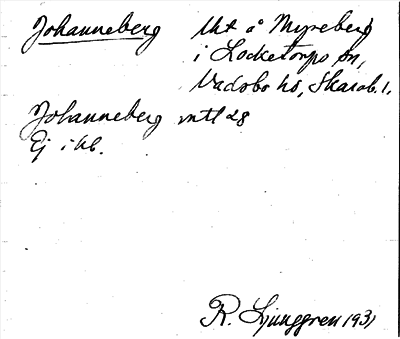 Johanneberg lht å Myreberg
i Locketorps sn,
Vadsbo hd, Skarab. l.
Johanneberg mtl 28
Ej i kl.
R. Ljunggren 1931